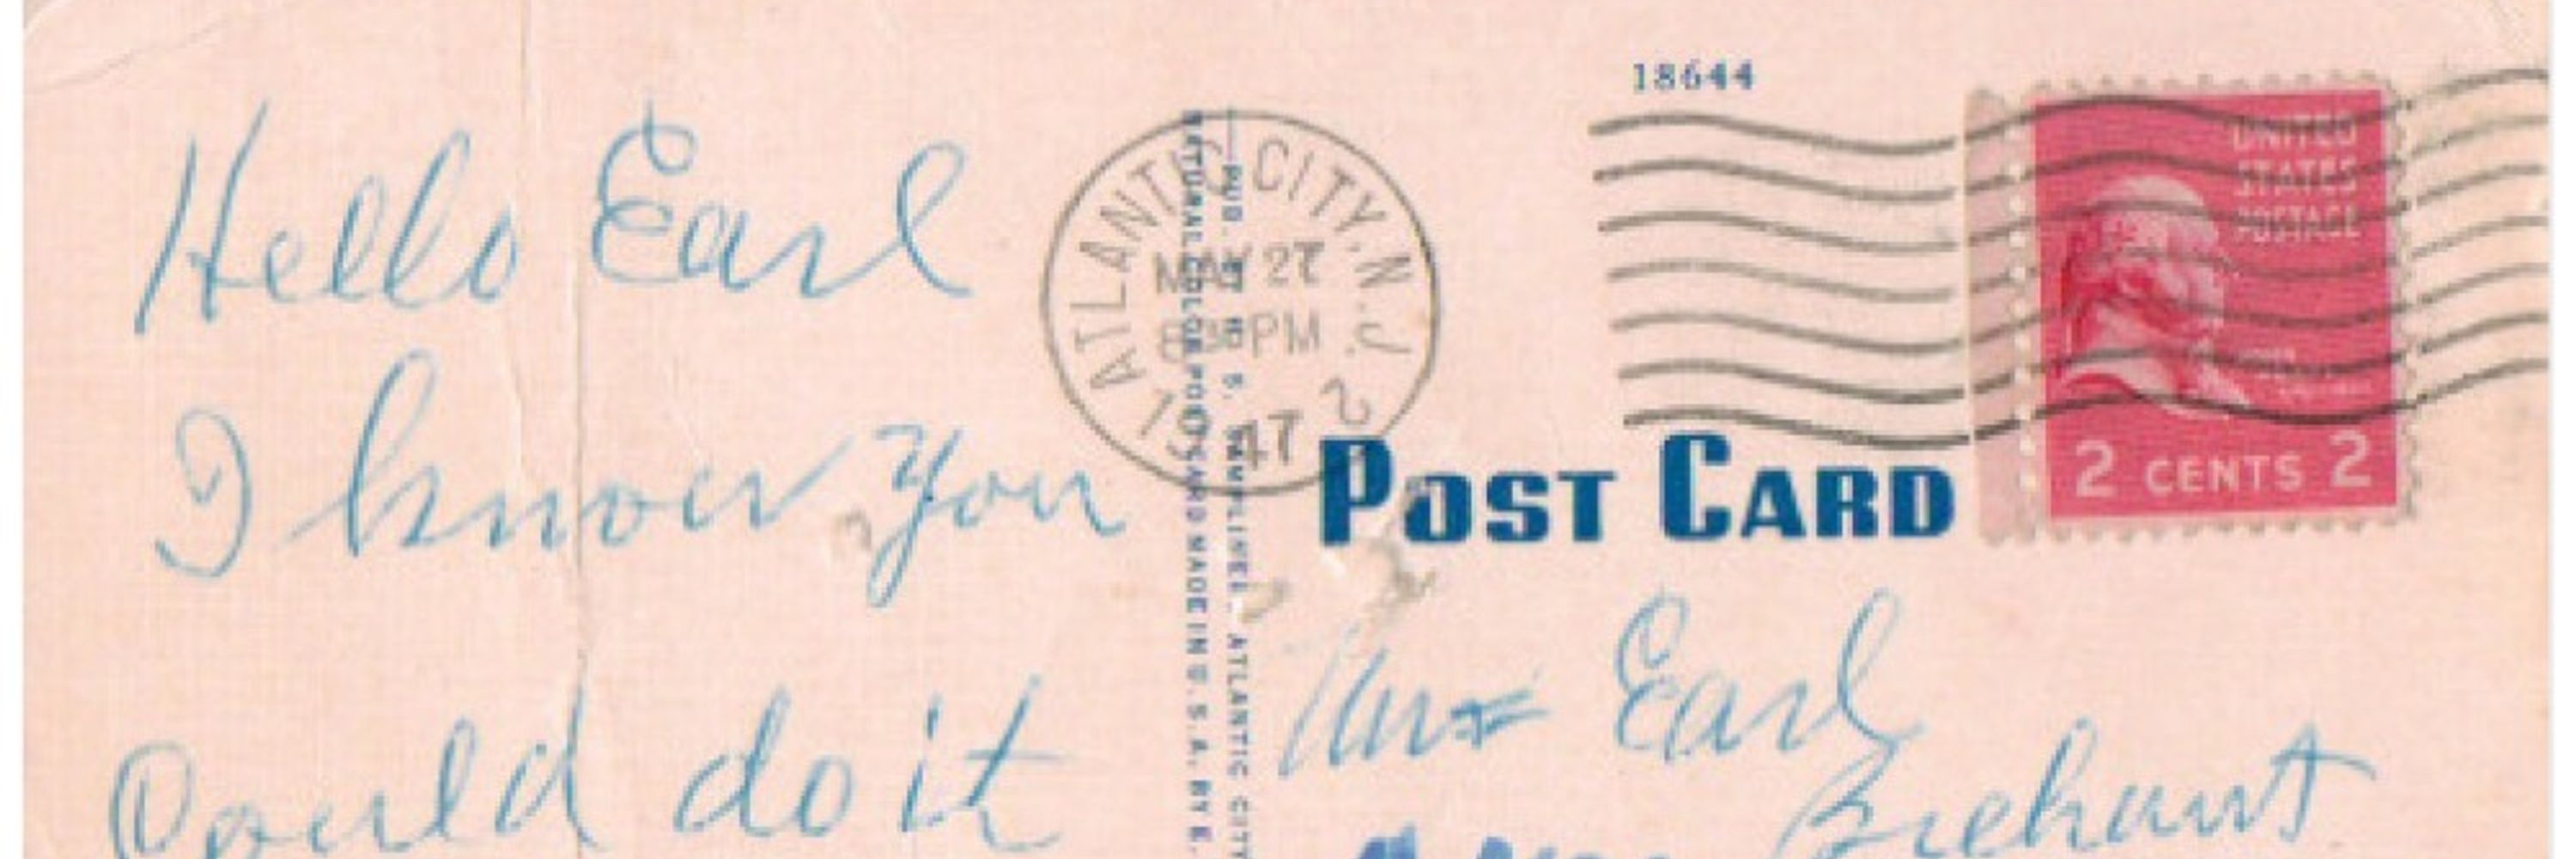 Hello Earl
I know you
Could do it
18644
ATLANTIC CITY, N.J. 2
MAY 27
PM
47
UNITED
STATES
POSTAGE
2 CENTS 2
POST CARD
Mr= Earl
PUB. BY E. S. ATLANTIC CITY
NATURAL COLOR POST CARD MADE IN U.S.A. BY E.